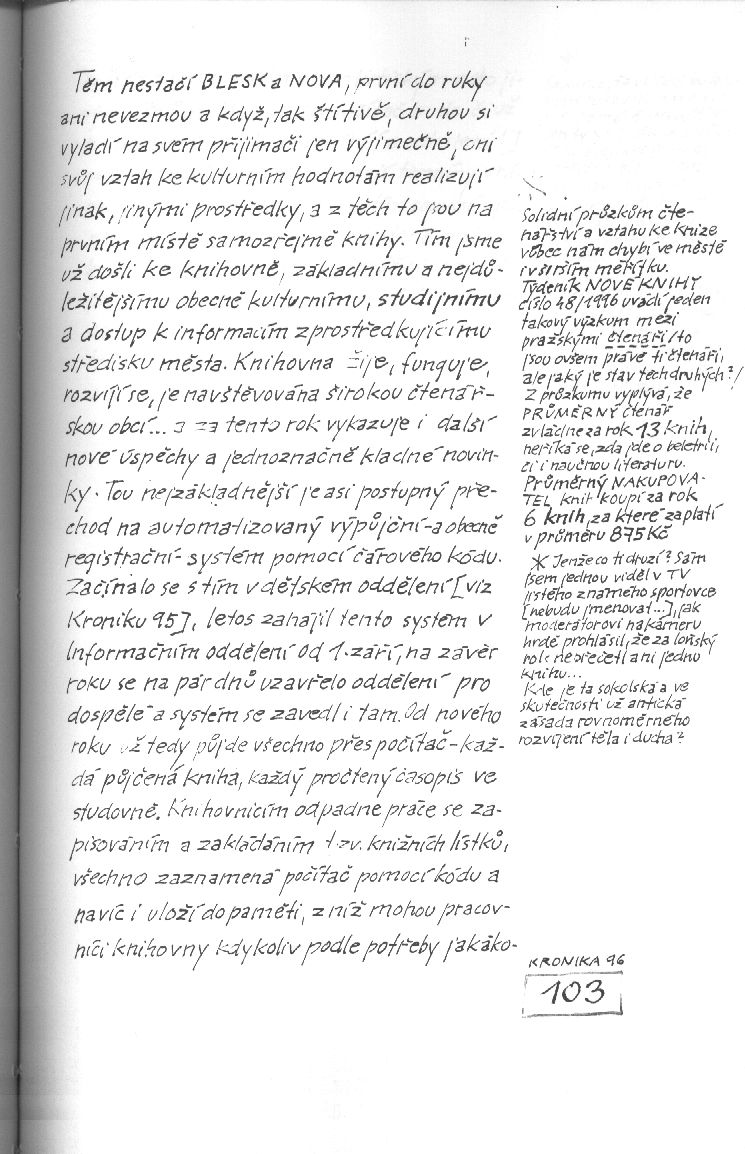 Těm nestačí BLESK a NOVA, první do ruky
ani nevezmou a když, tak štítivě, druhou si
vyladí na svém přijímači jen výjimečně, oni
svůj vztah ke kulturním hodnotám realizují
jinak, jinými prostředky, a z těch to jsou na
prvním místě samozřejmě knihy. Tím jsme
už došli ke knihovně, základnímu a nejdů-
ležitějšímu obecně kulturnímu, studijnímu
a dostup k informacím zprostředkujícímu
středisku města. Knihovna žije, funguje,
rozvíjí se, je navštěvována širokou čtenář-
skou obcí... a za tento rok vykazuje i další
nové úspěchy a jednoznačně kladné novin-
ky. Tou nejzákladnější je asi postupný pře-
chod na automatizovaný výpůjční-a obecně
registrační- systém pomocí čárového kódu.
Začínalo se s tím v dětském oddělení [viz
Kroniku 95], letos zahájil tento systém v
Informačním oddělení od 1. září, na závěr
roku se na pár dnů uzavřelo oddělení pro
dospělé a systém se zavedl i tam. Od nového
roku už tedy půjde všechno přes počítač-kaž-
dá půjčená kniha, každý pročtený časopis ve
studovně. Knihovnicím odpadne práce se za-
pisováním a zakládáním tzv. knižních lístků,
všechno zaznamená počítač pomocí kódu a
navíc i uloží do paměti, z níž mohou pracov-
níci knihovny kdykoliv podle potřeby jakáko-
Solidní průzkum čte-
nářství a vztahu ke knize
vůbec nám chybí ve městě
i v širším měřítku.
Týdeník NOVÉ KNIHY
číslo 48/1996 uvádí jeden
takový výzkum mezi
pražskými čtenáři /to
jsou ovšem právě ti čtenáři,
ale jaký je stav těch druhých?/
Z průzkumu vyplývá, že
PRŮMĚRNÝ čtenář
zvládne za rok 13 knih,
neříká se, zda jde o beletrii,
či i naučnou literaturu.
Průměrný NAKUPOVA-
TEL knih koupí za rok
6 knih, za které zaplatí
v průměru 875 Kč
* Jenže co ti druzí? Sám
jsem jednou viděl v TV
jistého známého sportovce
[nebudu jmenovat...], jak
moderátorovi na kameru
hrdě prohlásil, že za loňský
rok nepřečetl ani jednu
knihu...
Kde je ta sokolská a ve
skutečnosti už antická
zásada rovnoměrného
rozvíjení těla i ducha?
KRONIKA 96
103